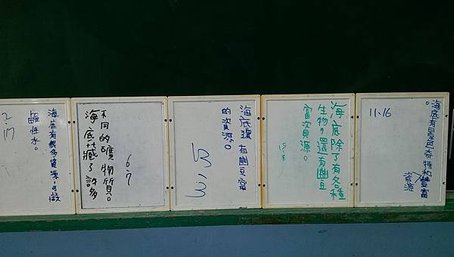 海底有奇特和豐富
資源。
11.16
海底除了有各種
生物，還有豐
富資源。
海底還有豐富
的資源。
海底藏了許多
不同的礦物質。
6.7
海底有很多資源，
鹼性水。
2.17